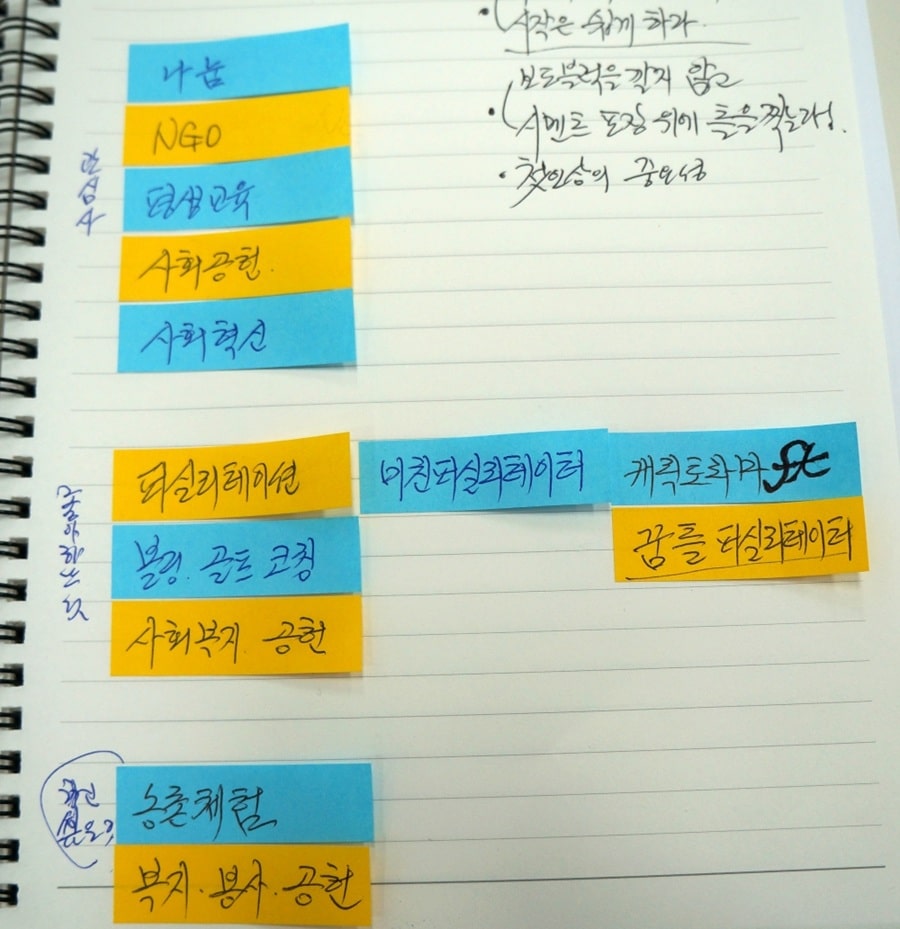 시작은 쉽게 하라.
보도블럭을 깔지 않고
시멘트 포장 위에 틀을 찍는다.
첫인상의 중요성
관심사
나눔
NGO
평생교육
사회공헌.
사회혁신
좋아하는 것
퍼실리테이션
미친퍼실리테이터
캐릭토라마 ft
꿈틀 퍼실리테이터
볼링. 골프 코칭
사회복지 공헌
하고 싶은
농촌체험
복지.봉사.공헌